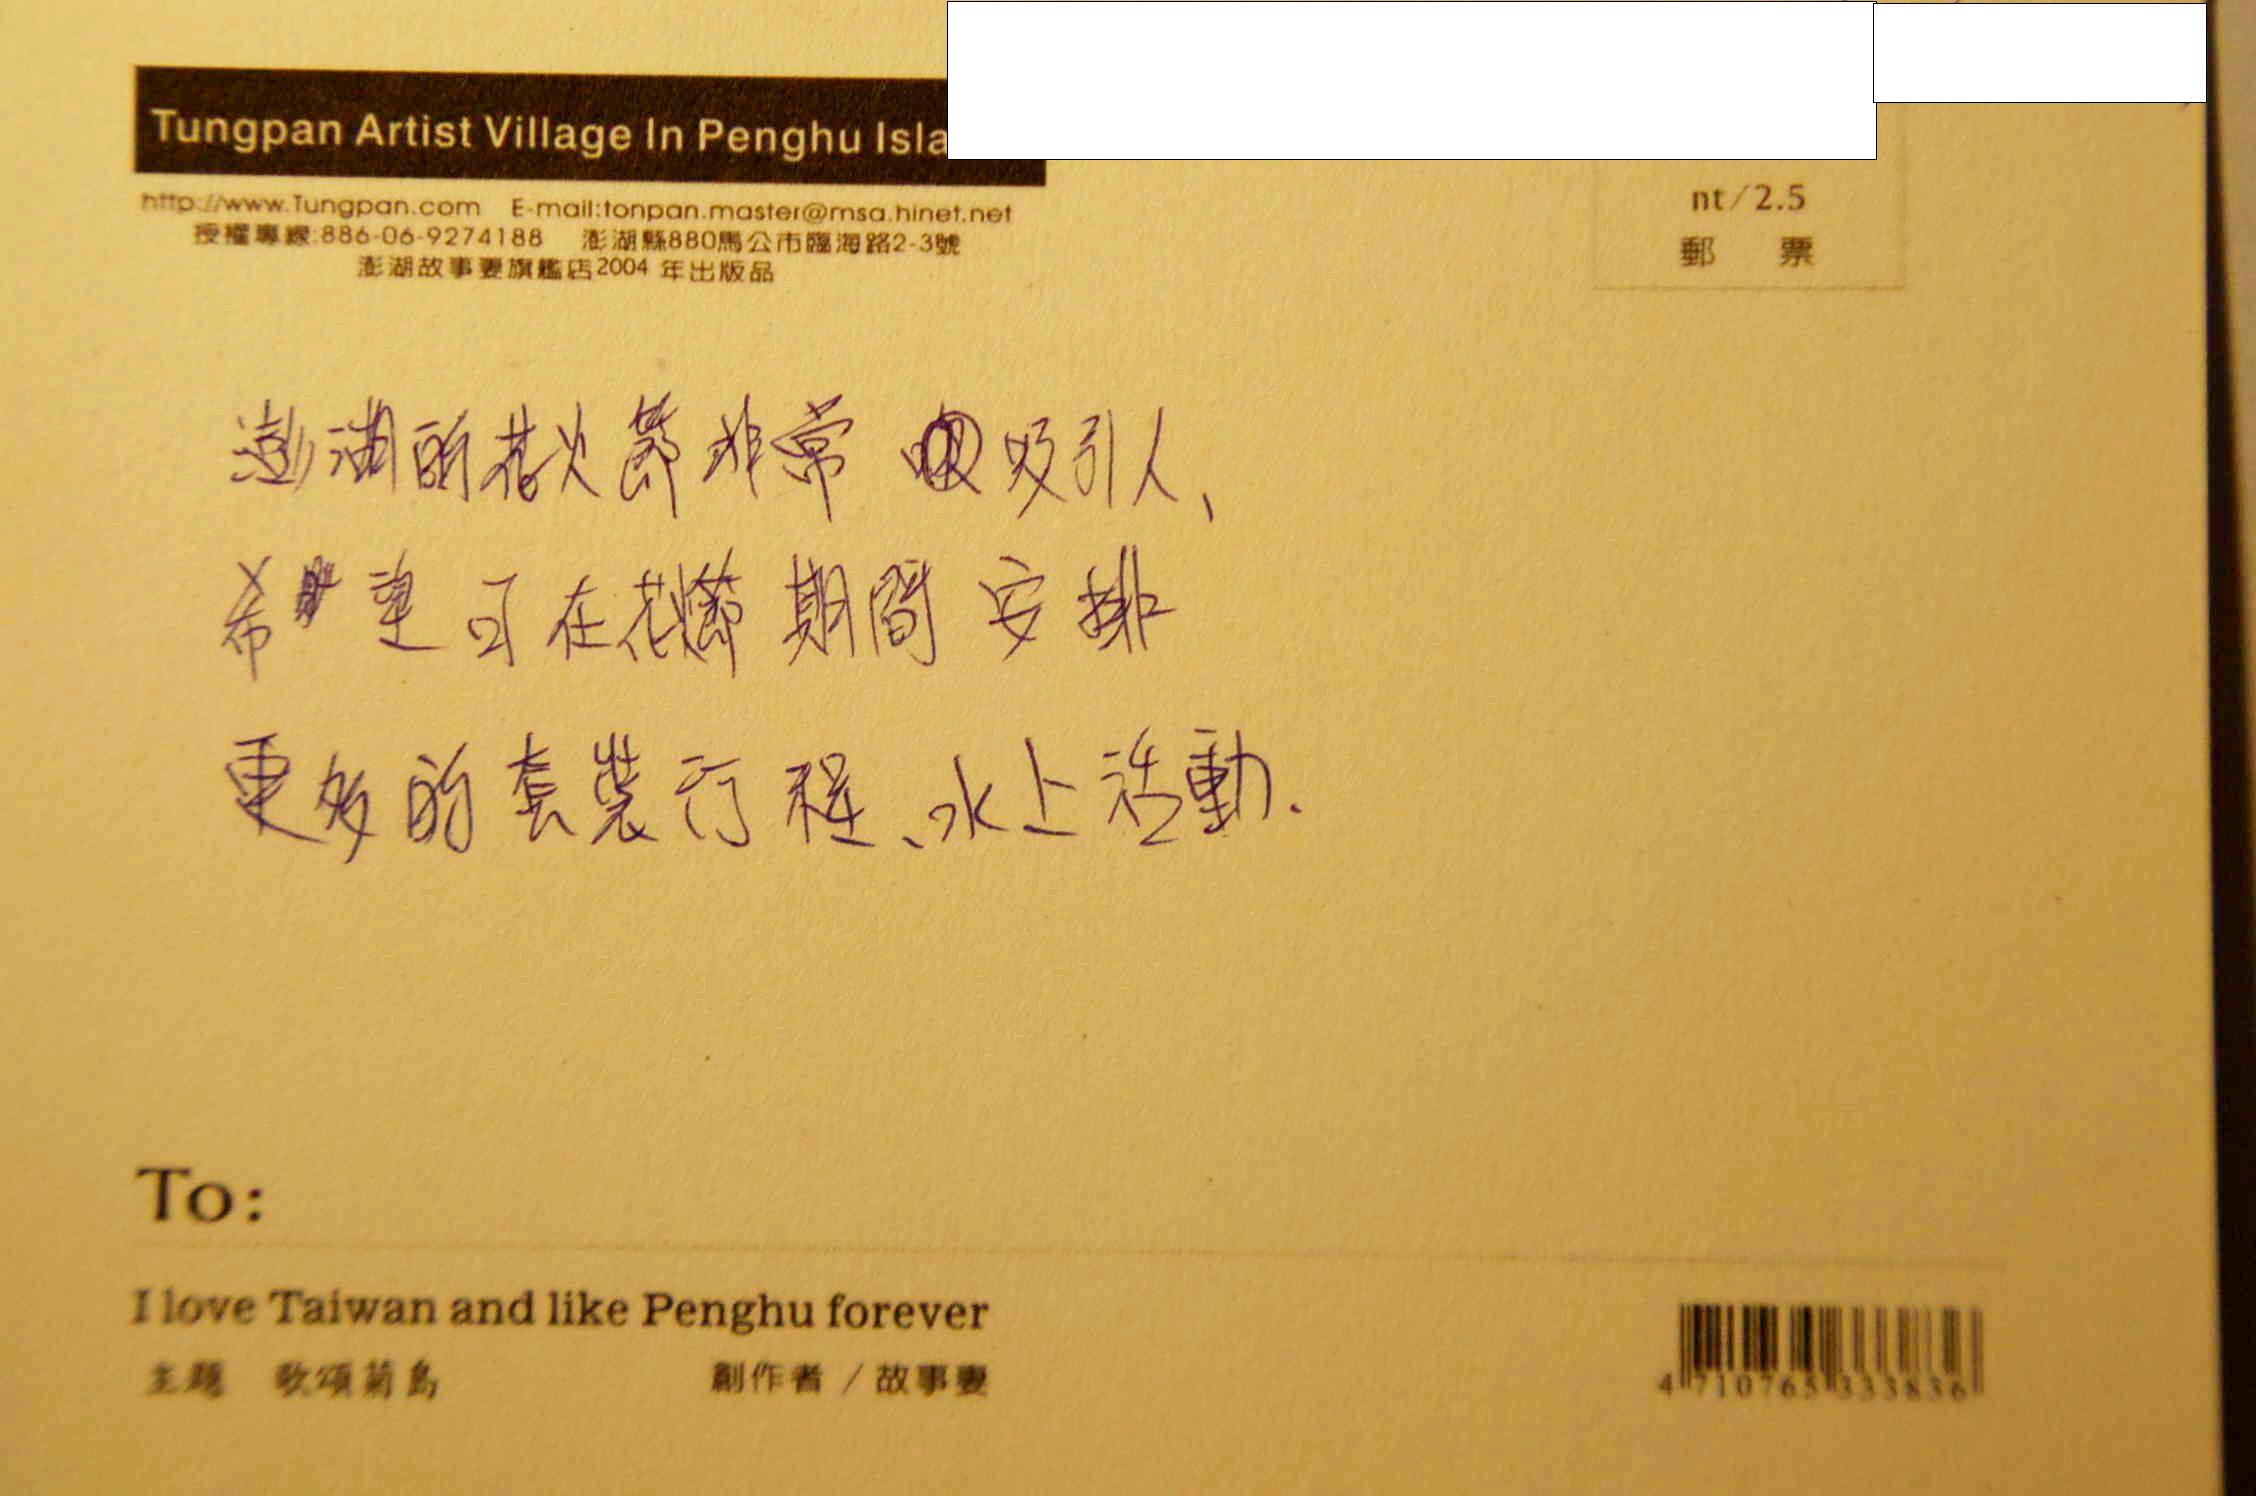 Tungpan Artist Village In Penghu Isla
http://www.Tungpan.com E-mail:tonpan.master@msa.hinet.net
授權專線:886-06-9274188 澎湖縣880馬公市臨海路2-3號
澎湖故事妻旗艦店2004 年出版品
nt/2.5
郵 票
澎湖的花火節非常 吸引人、
希望可在花火節期間安排
更多的套裝行程、水上活動.
To:
I love Taiwan and like Penghu forever
主題 歌頌菊島 創作者 / 故事妻
4 710765 333836